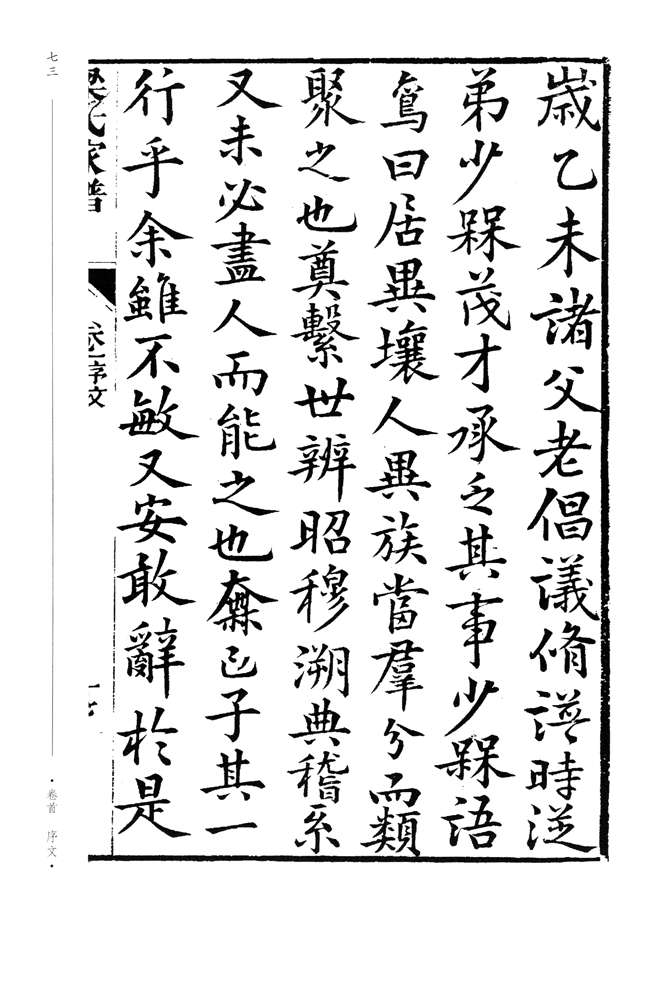 歲乙未諸父老倡議脩譜時從
弟少槑茂才承乏其事少槑語
曰居異壤人異族當羣分而類
聚之也奠繫世辨昭穆溯典稽系
又未必盡人而能之也橆已子其一
行乎余雖不敏又安敢辭於是
氏家譜
序文
七三
·卷首 序文·